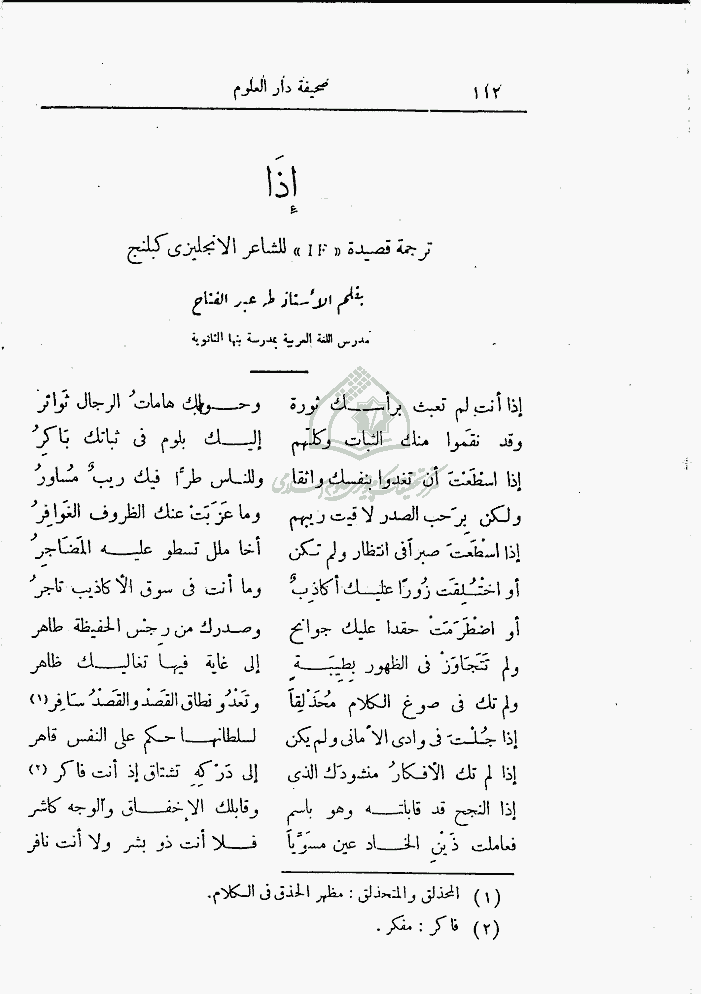 ١١٢ صحيفة دار العلوم
إِذَا
ترجمة قصيدة « IF » للشاعر الانجليزى كبلنج
بقلم الأستاذ طه عبد الفتاح
مدرس اللغة العربية بمدرسة بنها الثانوية
إذا أنت لم تعبث برأسك ثورة وحولك هاماتُ الرجال ثوائر
وقد نقَموا منك الثبات وكلهم إليك بلوم فى ثباتك بَاكِرُ
إذا اسْطَعْتَ أن تغدوا بنفسك واثقا وللناس طرًّا فيك ريبٌ مُساورُ
ولكن بِرَحب الصدر لاقيت ريبهم وما عَزَبَتْ عنك الظروف الغَوافِرُ
إذا اسْطَعتَ صبرا فى انتظار ولم تكن أخا ملل تسطو عليه المَضَاجِرُ
أو اخْتُلِقت زُورًا عليك أكاذِبٌ وما أنت فى سوق الأكاذيب تاجرُ
أو اضْطَرَمَتْ حقدا عليك جوانح وصدرك من رجْس الحفيظة طاهر
ولم تَتَجَاوَزْ فى الظهور بِطِيبَةٍ إلى غاية فيها تغاليك ظاهر
ولم تك فى صوغ الكلام مُحَذْلِقاً وتَعْدُو نطاق القَصْد والقَصْدُ سَافِر (١)
إذا جُلْتَ فى وادى الأمانى ولم يكن لسلطانها حكم على النفس قاهر
إذا لم تك الأفكارُ منشودَك الذى إلى دَرْكِهِ تشتاق إذ أنت فاكر (٢)
إذا النجح قد قابلته وهو باسم وقابلك الإخفاق والوجه كاشر
فعاملت ذَيْنِ الخادعين مسَوِّياً فلا أنت ذو بشر ولا أنت نافر
(١) المحذلق والمتحذلق : مظهر الحذق فى الكلام.
(٢) فاكر : مفكر .